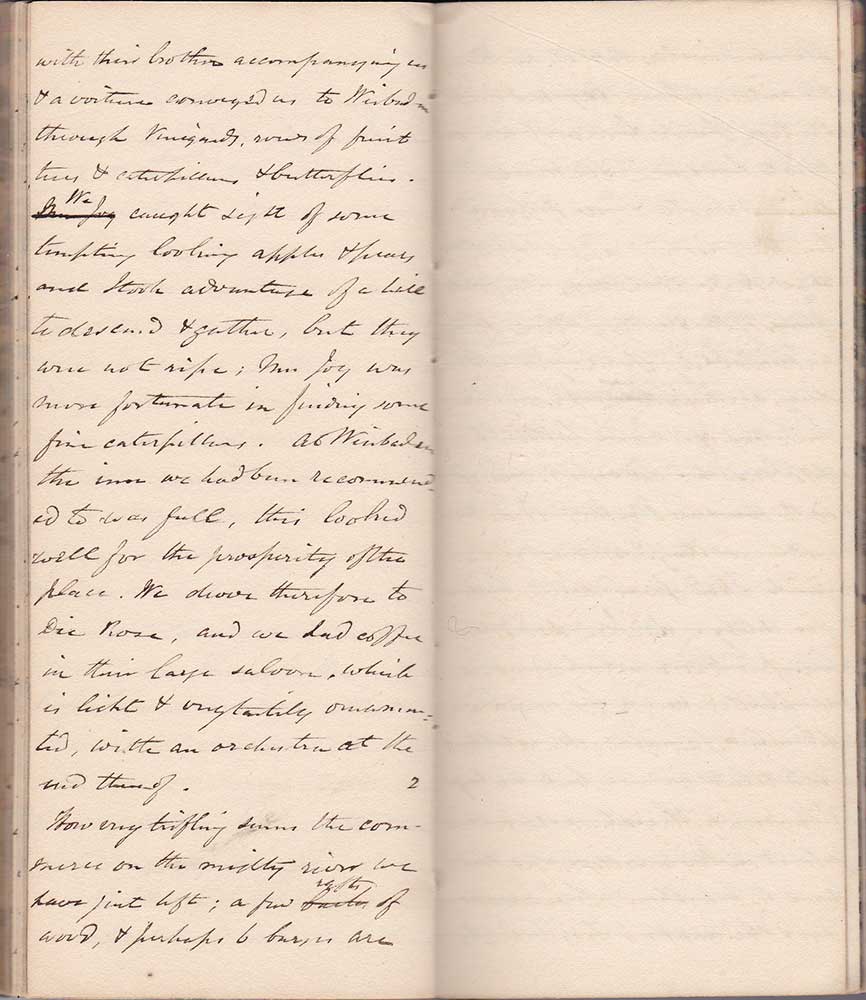 with their brother accompanying us
& a voiture conveyed us to Wisbaden
through Vineyards, rows of fruit
trees & caterpillars & butterflies.
We
Mrs Joy caught sight of some
tempting looking apples & pears
and I took advantage of a hill
to descend & gather, but they
were not ripe; Mrs Joy was
more fortunate in finding some
fine caterpillars. At Wisbaden
the inn we had been recommend-
ed to was full, this looked
well for the prosperity of the
place. We drove therefore to
Die Rose, and we had coffee
in their large saloon, which
is light & very tastily ornamen=
ted, with an orchestra at the
end thereof. 2
How very trifling seems the com-
merce on the mighty river we
rafts
have just left; a few of
wood, & perhaps 6 barges are